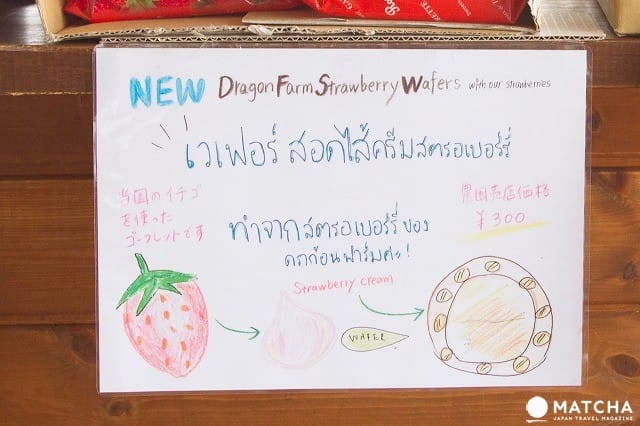 NEW Dragon Farm Strawberry Wafers with our strawberries
เวเฟอร์ สอดไส้ครีมสตรอเบอร์รี่
当園のイチゴ
を使った
ゴーフレットです
農園売店価格
¥300
ทำจากสตรอเบอร์รี่ของ
ดรก้อนฟาร์มค่ะ!
Strawberry cream
WAFER
MATCHA
JAPAN TRAVEL MAGAZINE